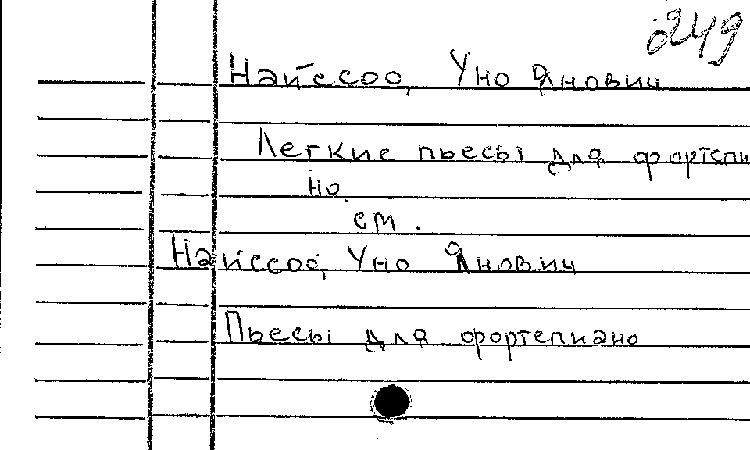 0249
Найссоо, Уно Янович
Легкие пьесы для фортепиа
но
см.
Найссоо, Уно Янович
Пьесы для фортепиано